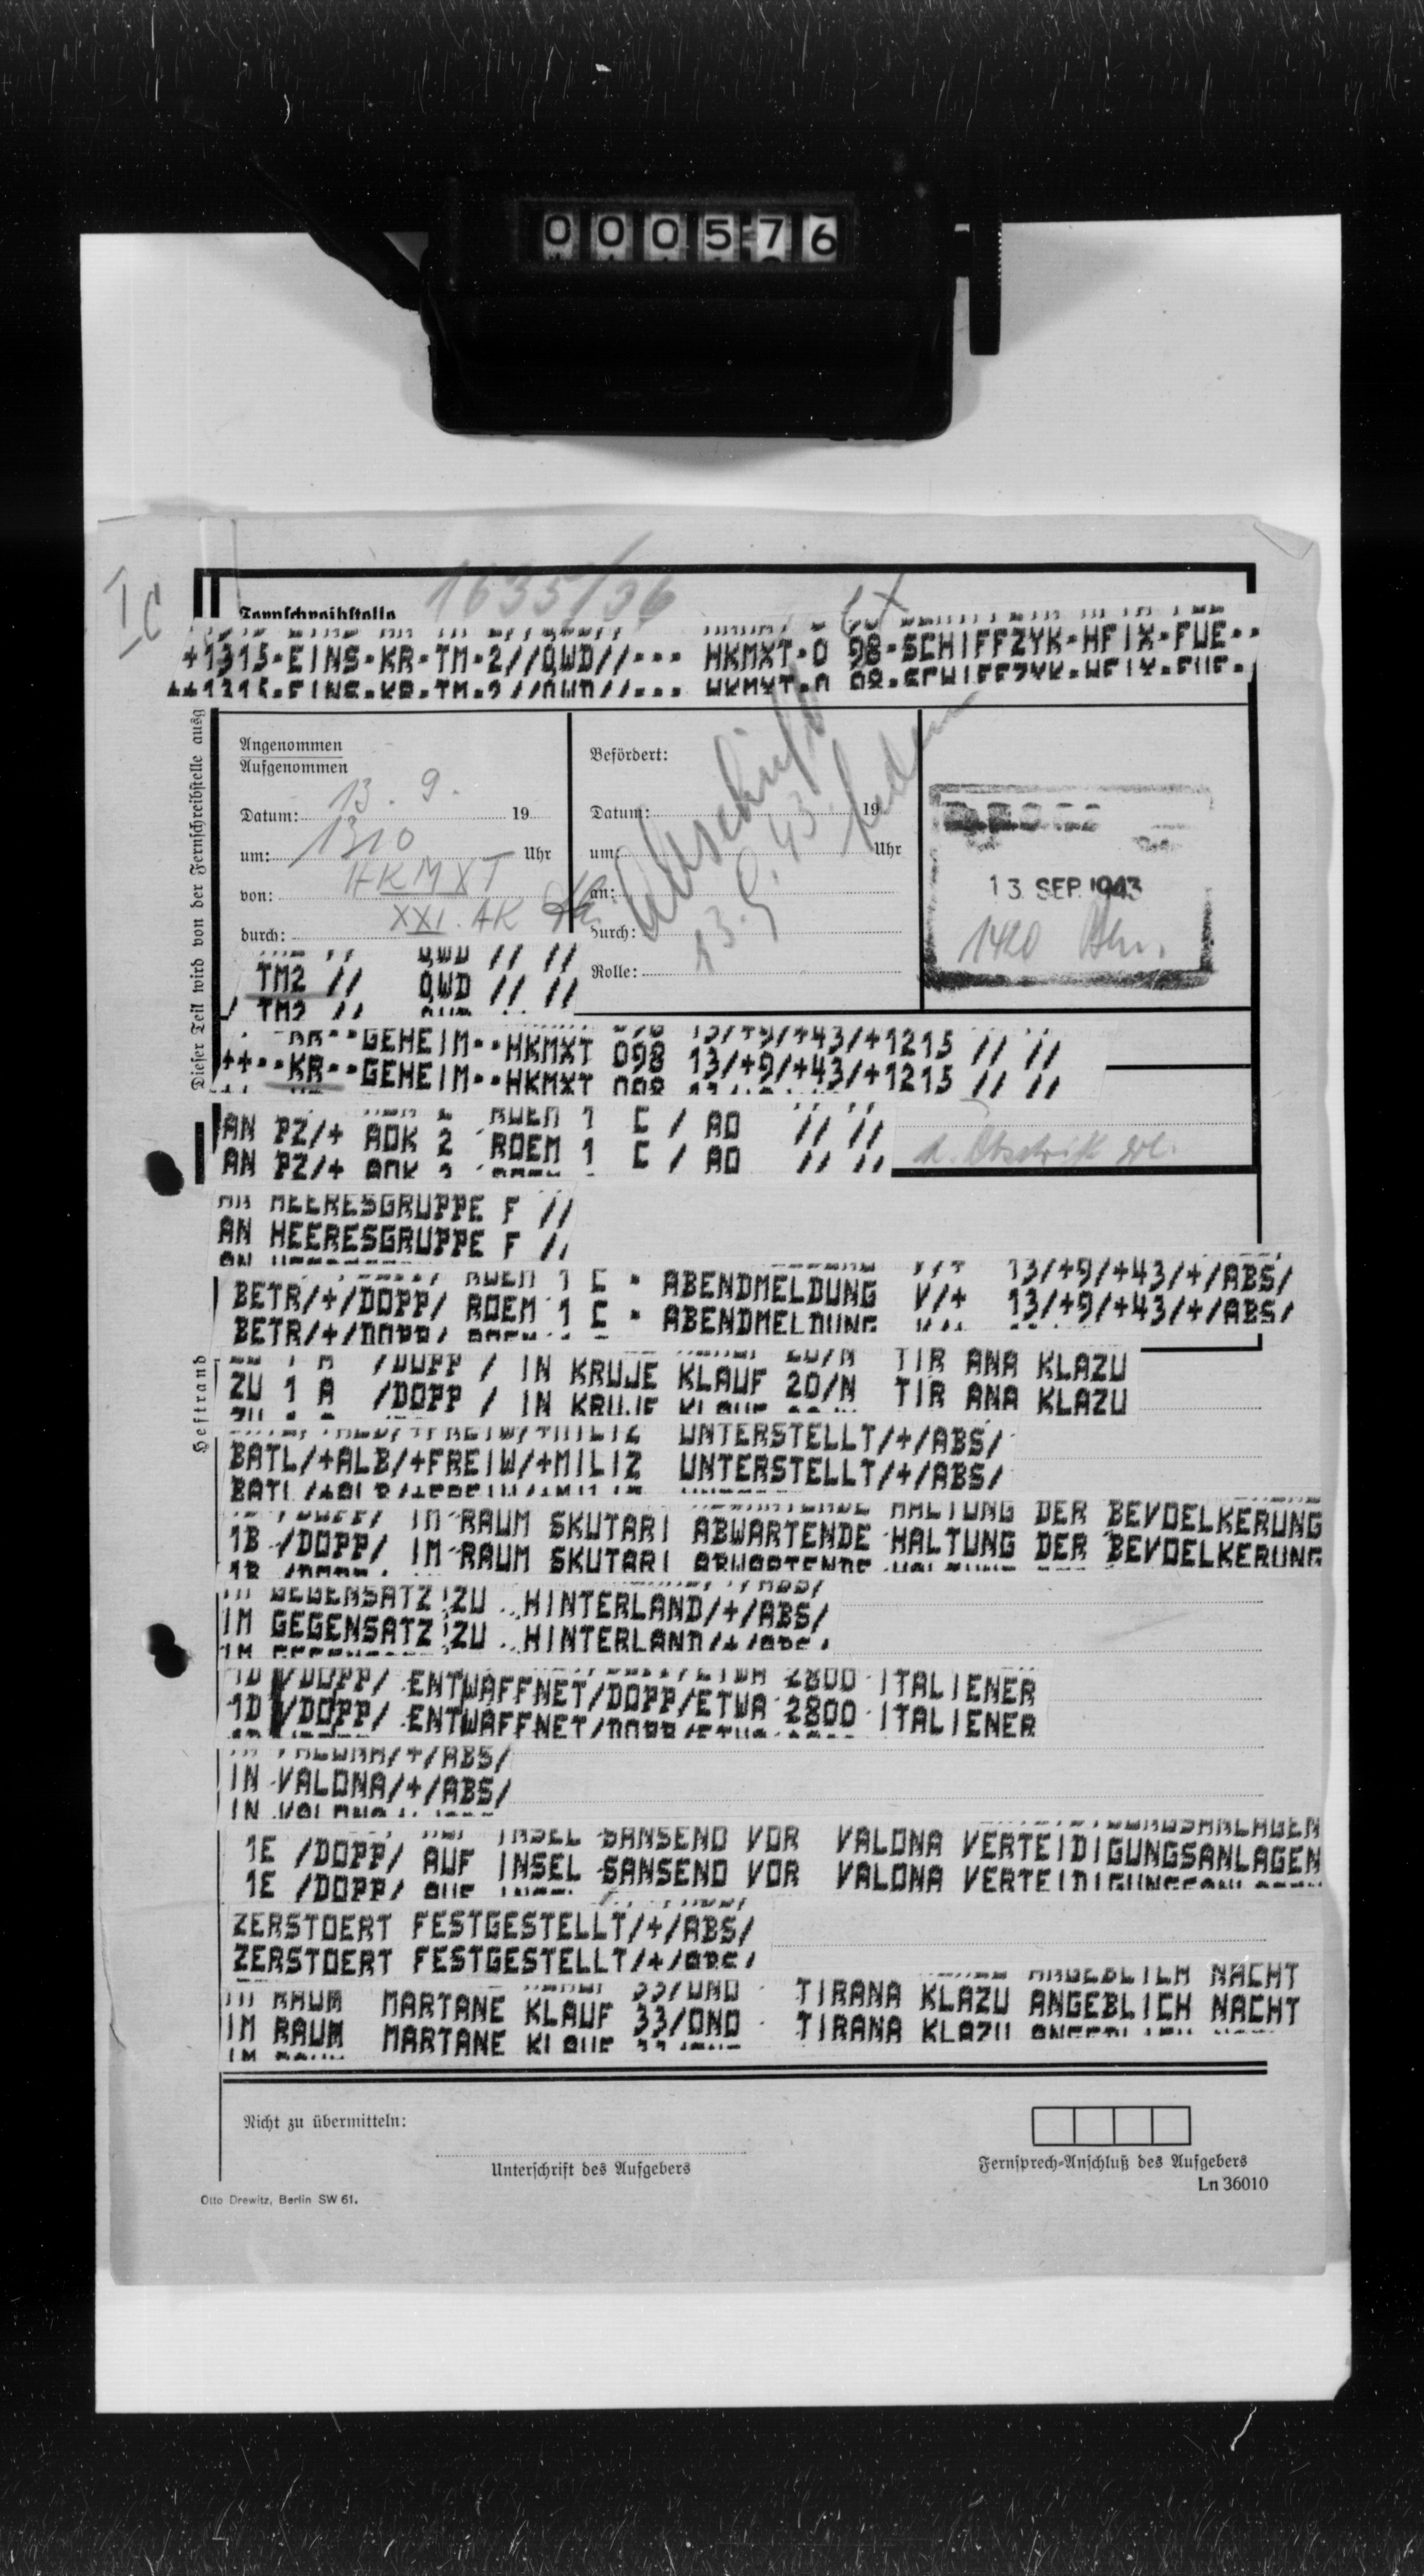 000576
Ic
1635/36
Fernschreibstelle
+1315-EINS-KR-TM-2//QWD//--- HKMXT-O 98-SCHIFFZYK-HFIX-FUE--
Dieser Teil wird von der Fernschreibstelle ausg
Angenommen
Aufgenommen
Datum: 13. 9. 19
um: 1310 Uhr
von: HKMXT
durch: XXI. AK
Befördert:
Datum: 19
um: Uhr
an:
durch:
Rolle:
Abschrift
13.9.43
13. SEP. 1943
1420
TM2 // QWD // //
++--KR--GEHEIM--HKMXT 098 13/+9/+43/+1215 // //
AN PZ/+ AOK 2 ROEM 1 C / AO // //
d. Abschrift
AN HEERESGRUPPE F //
BETR/+/DOPP/ ROEM 1 C - ABENDMELDUNG V/+ 13/+9/+43/+/ABS/
Heftrand
ZU 1 A /DOPP / IN KRUJE KLAUF 20/N TIR ANA KLAZU
BATL/+ALB/+FREIW/+MILIZ UNTERSTELLT/+/ABS/
1B /DOPP/ IM RAUM SKUTARI ABWARTENDE HALTUNG DER BEVOELKERUNG
IM GEGENSATZ ZU HINTERLAND/+/ABS/
1D /DOPP/ ENTWAFFNET/DOPP/ETWA 2800 ITALIENER
IN VALONA/+/ABS/
1E /DOPP/ AUF INSEL SANSENO VOR VALONA VERTEIDIGUNGSANLAGEN
ZERSTOERT FESTGESTELLT/+/ABS/
IM RAUM MARTANE KLAUF 33/ONO TIRANA KLAZU ANGEBLICH NACHT
Nicht zu übermitteln:
Unterschrift des Aufgebers
Fernsprech-Anschluß des Aufgebers
Ln 36010
Otto Drewitz, Berlin SW 61.